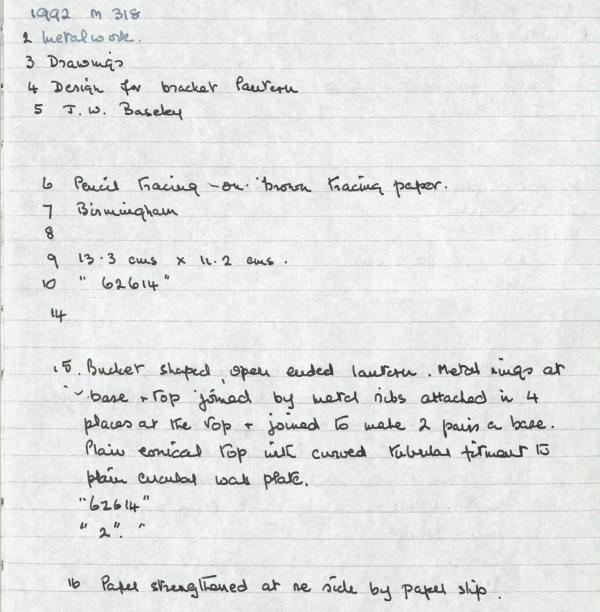 1992 M 318
2 Metalwork.
3 Drawings
4 Design for bracket lantern
5 J. W. Baseley
6 Pencil tracing - on brown tracing paper.
7 Birmingham
8
9 13.3 cms x 11.2 cms.
10 " 62614 "
14
15. Bucket shaped, open ended lantern. Metal rings at
base + top joined by metal ribs attached in 4
places at the top + joined to make 2 pairs a base.
Plain conical top with curved tubular fitment to
plain circular wall plate.
"62614"
" 2". "
16 Paper strengthened at one side by paper slip.